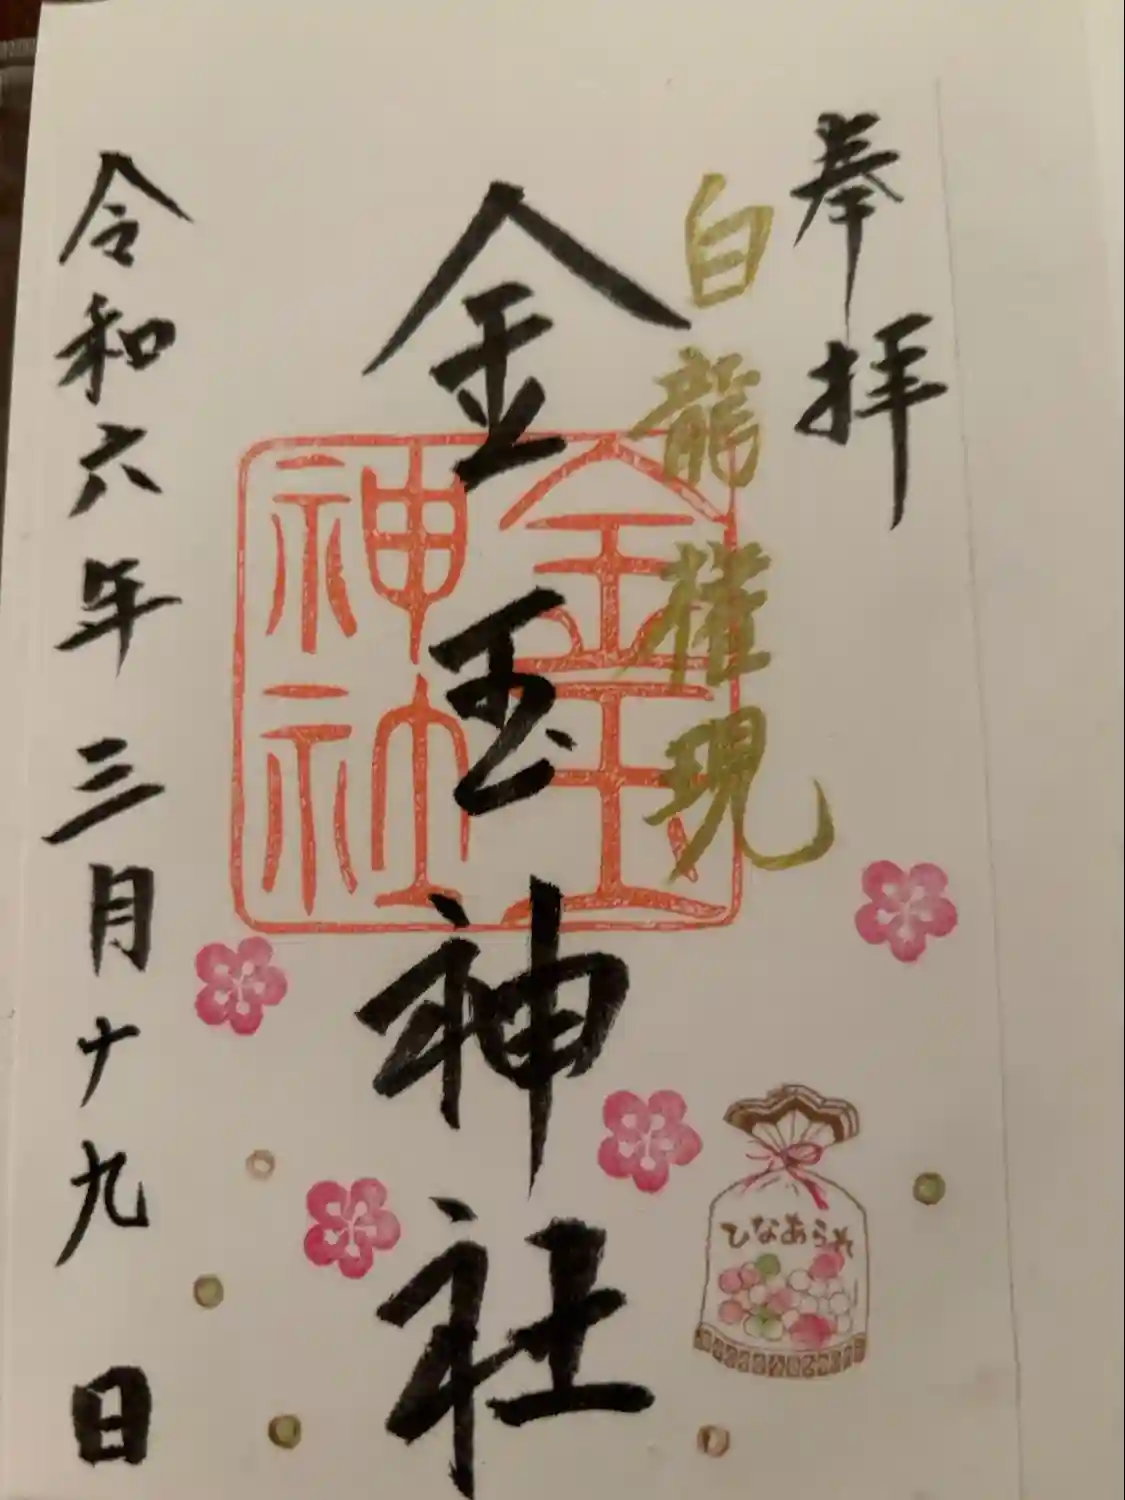 奉拝
白龍権現
金玉神社
金玉
神社
令和六年三月十九日
ひなあられ